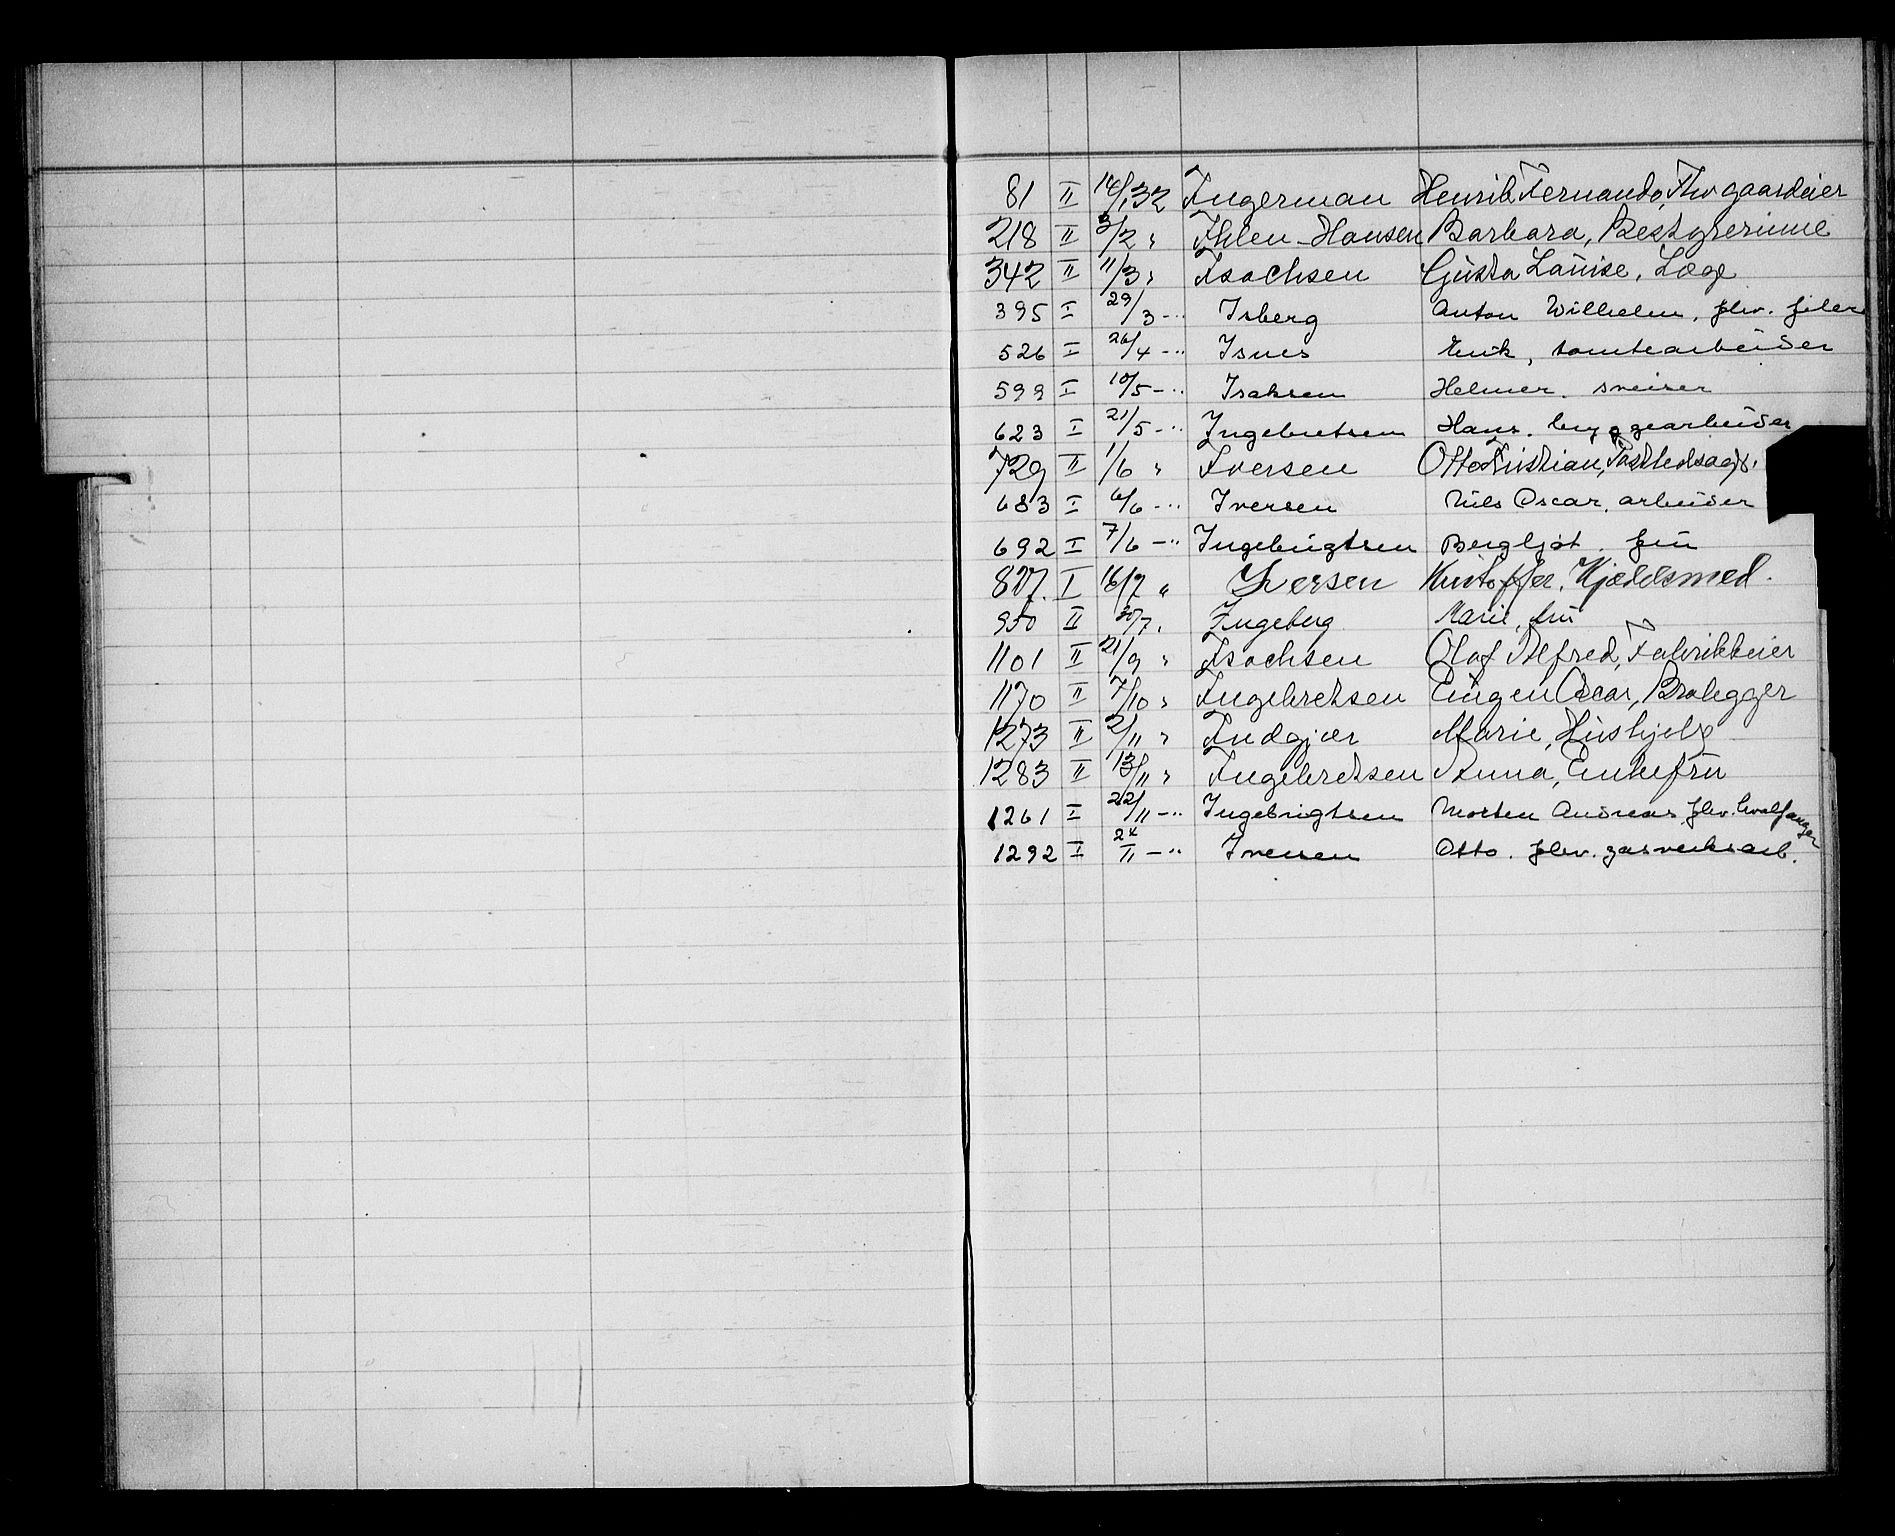 81 II 14/1 32 Ingerman Henrik Fernando, Fhv gaardeier
218 II 3/2 " Ihlen-Hansen Barbara, Bestyrerinne
342 II 11/3 " Isachsen Gusta Louise, Læge
395 I 29/3 -" Isberg Anton Wilhelm, fhv. filer
526 I 26/4 -" Isnes Erik, tomtearbeider
599 I 10/5 -" Isaksen Helmer. sveiser
623 I 21/5 -" Ingebretsen Hans. bryggearbeider
729 II 1/6 " Iversen Otto Kristian,
683 I 6/6 -" Iversen Nils Oscar, arbeider
692 I 7/6 -" Ingebrigtsen Bergljot. fru
807. I 16/7 " Iversen Kristoffer, Kjedelsmed.
950 II 20/7 " Ingeberg Marie, fru
1101 II 21/9 " Isachsen Olaf Alfred, Fabrikkeier
1170 II 7/10 " Ingebretsen Eugen Oscar, Brolegger
1273 II 2/11 " Indgjær Marie, Hushjelp
1283 II 13/11 " Ingebretsen Anna, Enkefru
1261 I 22/11 -" Ingebrigtsen Morten Andreas, fhv. hvalfanger
1292 I 24/11 -" Iversen Otto. fhv. gasverksarb.